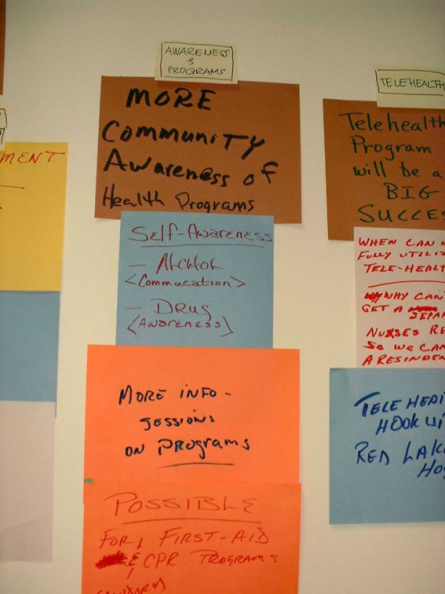 AWARENESS
&
PROGRAMS
MORE
Community
Awareness of
Health Programs
Self-Awareness
- Alchol
<Commucation>
- Drug
(Awareness)
MORE INFO-
SESSIONS
ON PROgRAMS
POSSIBLE
FOR 1 FIRST-AID
& CPR. PROGRAMS
TELEHEALTH
Telehealth
Program
will be a
BIG
SUCCES
WHEN CAN
FULLY UTILI
TELE-HEAL
WHY CAN'
GET A SEPAR
NURSES RE
SO WE CAN
A RESINDEN
TELEHEAL
HOOKU
RED LAK
HO
MENT